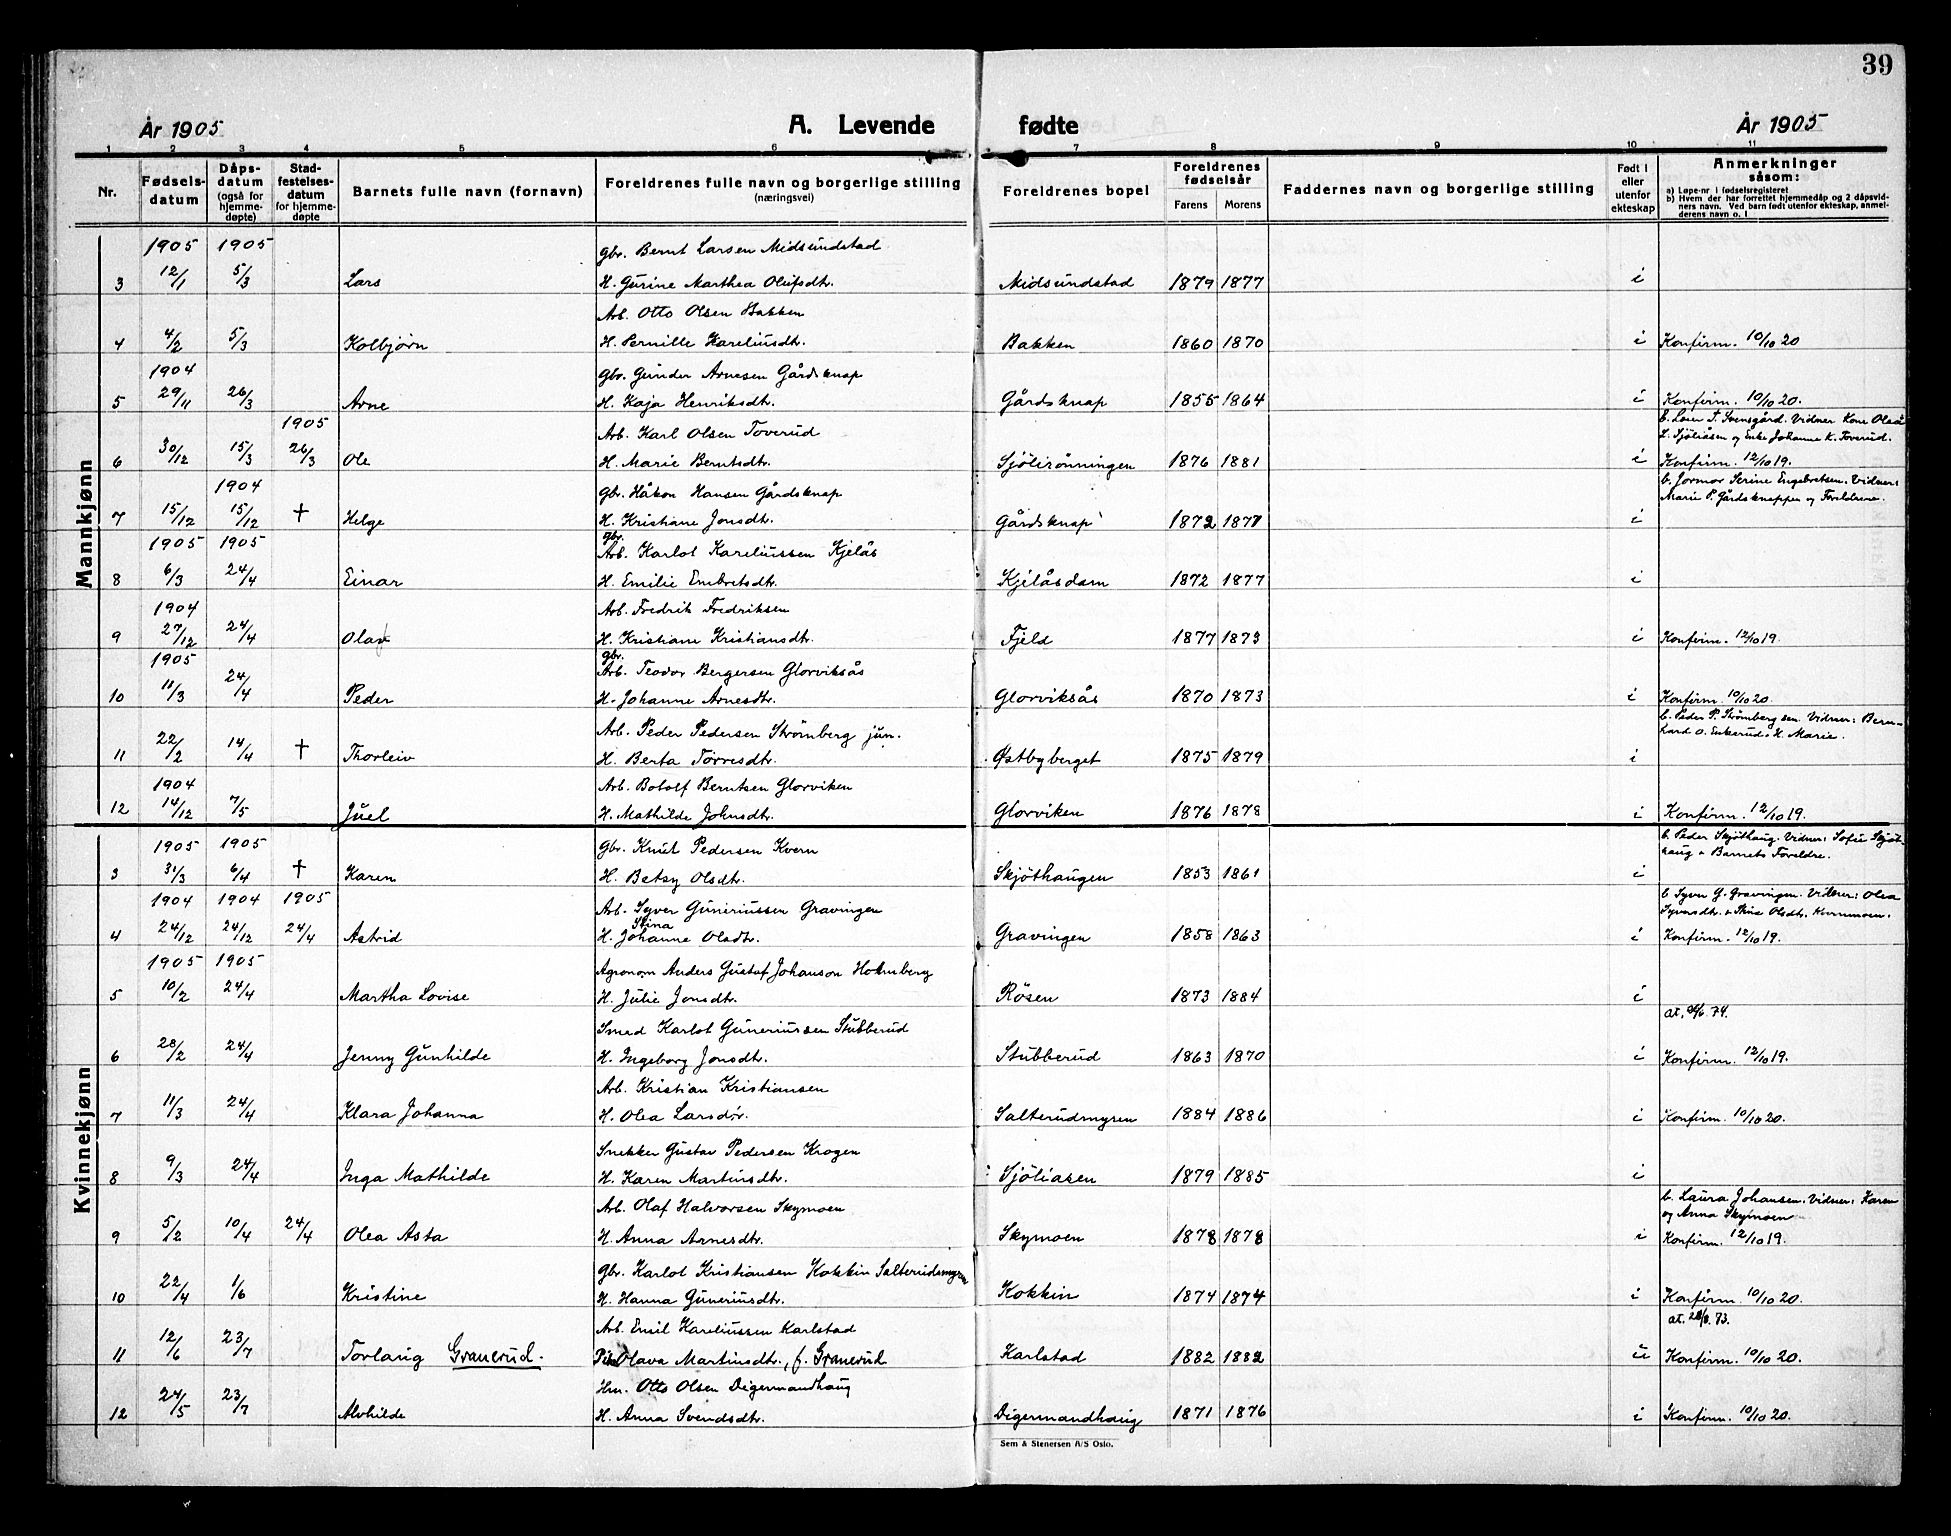 39
År 1905
A. Levende
fødte
År 1905
1 2 3 4 5 6 7 8 9 10 11
Nr. | Fødsels-datum | Dåps-datum (også for hjemme-døpte) | Stad-festelses-datum for hjemme-døpte | Barnets fulle navn (fornavn) | Foreldrenes fulle navn og borgerlige stilling (næringsvei) | Foreldrenes bopel | Foreldrenes fødselsår Farens Morens | Faddernes navn og borgerlige stilling | Født i eller utenfor ekteskap | Anmerkninger såsom: a) Løpe-nr i fødselsregisteret b) Hvem der har forrettet hjemmedåp og 2 dåpsvidners navn. Ved barn født utenfor ekteskap, anmelderens navn o. l
Mannkjønn
1905 1905 Gbr. Bernt Larsen Midsundstad
3 12/1 5/3 Lars H. Gurine Marthea Olufsdtr. Midsundstad 1879 1877 i
Arb. Otto Olsen Bakken
4 4/2 5/3 Kolbjørn H. Pernille Kareliusdtr. Bakken 1860 1870 i Konfirm. 10/10 20
1904 Gbr. Gunder Arnesen Gårdsknap
5 29/11 26/3 Arne H. Kaja Henriksdtr. Gårdsknap 1855 1864 i Konfirm. 10/10 20.
1905 Arb. Karl Olsen Toverud b. Svensgård. Vidner Kone Olea
L. Sjøliåsen og Enke Johanne K. Toverud.
6 30/12 15/3 26/3 Ole H. Marie Berntsdtr. Sjölirønningen 1876 1881 i Konfirm. 12/10 19.
1904 Gbr. Håkon Hansen Gårdsknap b. Jormor Serine Engebretsen. Vidner:
Marie P. Gårdsknappen og Foreldrene.
7 15/12 15/12 † Helge H. Kristiane Jonsdtr. Gårdsknap 1872 1877 i
1905 1905 gbr. Arb. Karlot Kareliussen Kjelås
8 6/3 24/4 Einar H. Emilie Embretsdtr. Kjelåsdam 1872 1877 i
1904 Arb. Fredrik Fredriksen
9 27/12 24/4 Olav H. Kristiane Kristiansdtr. Fjeld 1877 1873 i Konfirm. 12/10 19.
1905 gbr. Arb. Teodor Bergersen Glorviksås
10 11/3 24/4 Peder H. Johanne Arnesdtr. Glorviksås 1870 1873 i Konfirm. 10/10 20.
Arb. Peder Pedersen Strömberg jun. b. Peder P. Strömberg sen. Vidner: Bern-
hard O. Enkerud & H. Marie.
11 22/2 14/4 † Thorleiv H. Berta Torresdtr. Østbyberget 1875 1879 i
1904 Arb. Botolf Berntsen Glorviken
12 14/12 7/5 Juel H. Mathilde Johnsdtr. Glorviken 1876 1878 i Konfirm. 12/10 19.
Kvinnekjønn
1905 1905 Gbr. Knut Pedersen Kvern b. Peder Skjöthaug. Vidner: Sofie Skjöt-
haug & Barnets Foreldre.
3 31/3 6/4 † Karen H. Betsy Olsdtr. Skjöthaugen 1853 1861 i
1904 1904 1905 Arb. Syver Guneriussen Gravingen b Syver G. Gravingen. Vidner: Olea
Syversdtr. & Stina Olsdtr. Kvernmoen.
4 24/12 24/12 24/4 Astrid H. Stina Johanne Olsdtr. Gravingen 1858 1863 i Konfirm. 12/10 19.
1905 1905 Agronom Anders Gustaf Johanson Holmberg
5 10/2 24/4 Martha Lovise H. Julie Jonsdtr. Røsen 1873 1884 i
Smed Karlot Guneriussen Stubberud at. /6. 74.
6 28/2 24/4 Jenny Gunhilde H. Ingeborg Jonsdtr. Stubberud 1863 1870 i Konfirm. 12/10 19.
Arb. Kristian Kristiansen
7 11/3 24/4 Klara Johanna H. Olea Larsdtr. Salterudmyren 1884 1886 i Konfirm. 10/10 20.
Snekker Gustav Pedersen Krogen
8 9/3 24/4 Inga Mathilde H. Karen Martinsdtr. Sjöliasen 1879 1885 i
Arb. Olaf Halvorsen Skymoen b. Laura Johansen. Vidner: Karen
og Anna Skymoen
9 5/2 10/4 24/4 Olea Asta H. Anna Arnesdtr. Skymoen 1878 1878 i Konfirm. 12/10 19.
Gbr. Karlot Kristiansen Kokkin Salterudsmyren
10 22/4 1/6 Kristine H. Hanna Guneriusdtr. Kokkin 1874 1874 i Konfirm. 10/10 20.
Arb. Emil Kareliussen Karlstad at. 73.
11 12/6 23/7 Torlaug Granerud. Pike Olava Martinsdtr., f. Granerud Karlstad 1882 1882 u Konfirm. 10/10 20.
Hm. Otto Olsen Digermandhaug
12 24/5 23/7 Alvhilde H. Anna Svendsdtr. Digermandhaug 1871 1876 i Konfirm. 10/10 20.
Sem & Stenersen A/S Oslo.